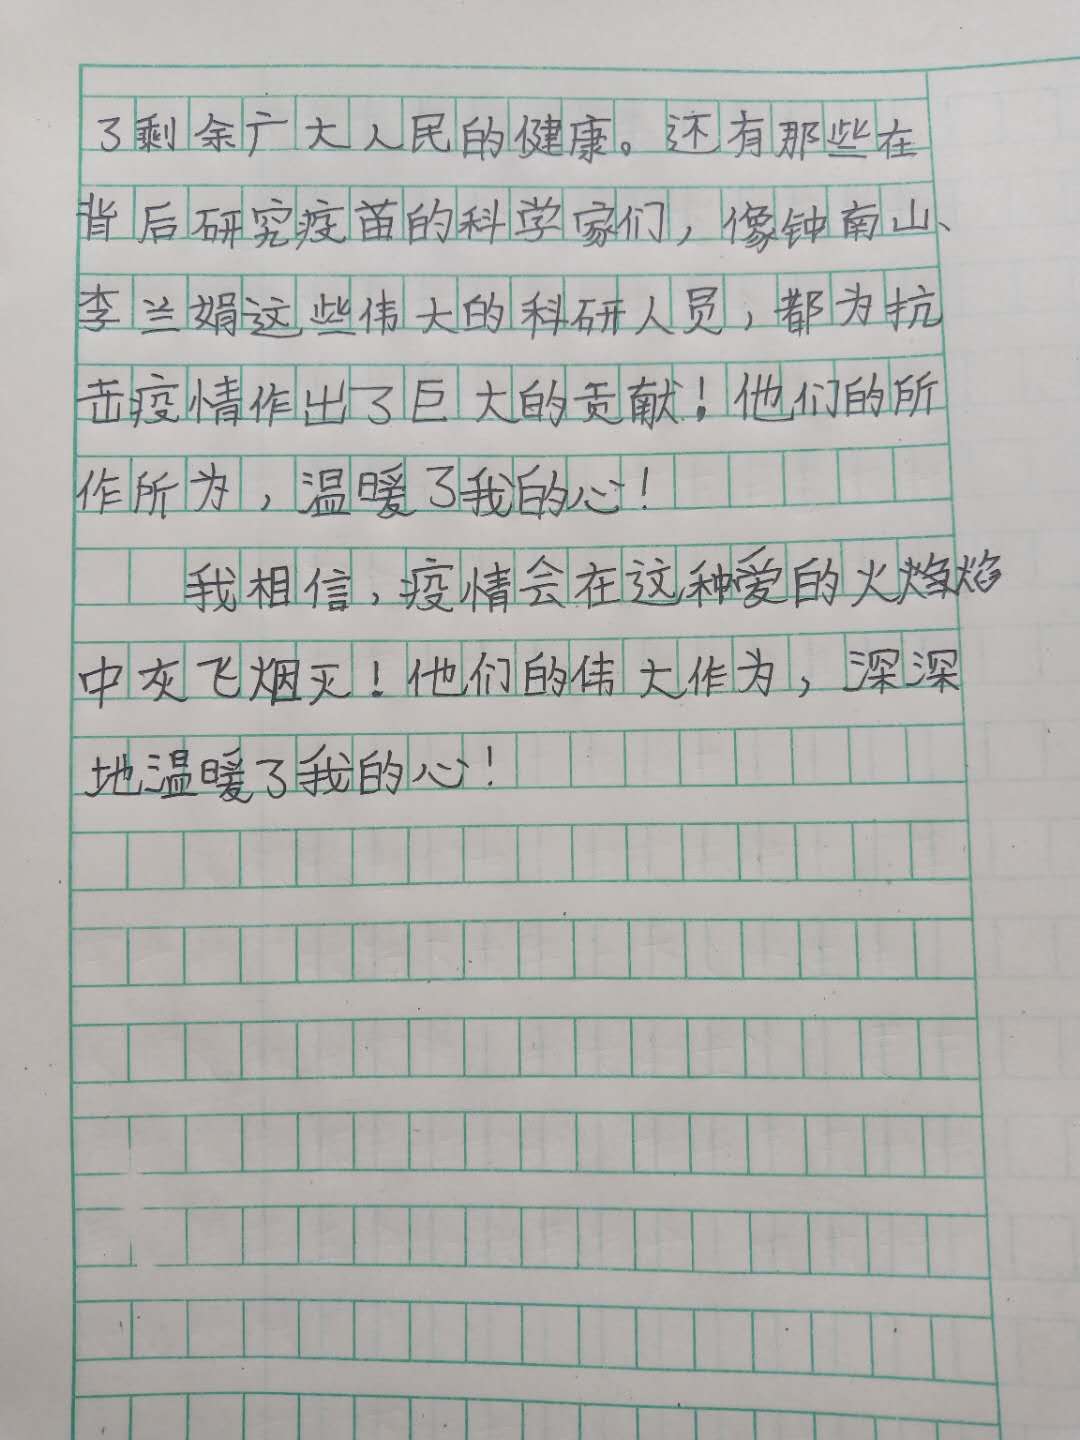 了剩余广大人民的健康。还有那些在
背后研究疫苗的科学家们，像钟南山、
李兰娟这些伟大的科研人员，都为抗
击疫情作出了巨大的贡献！他们的所
作所为，温暖了我的心！
我相信，疫情会在这种爱的火焰焰
中灰飞烟灭！他们的伟大作为，深深
地温暖了我的心！